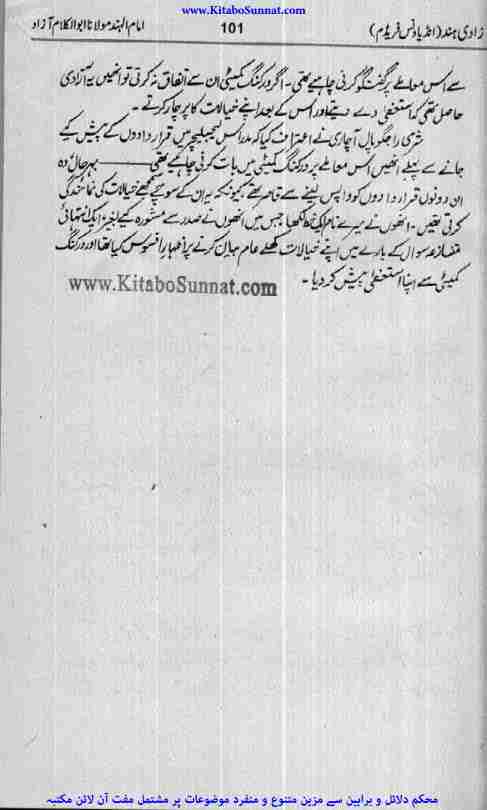 www.KitaboSunnat.com
زادی ہند (انڈیا ونس فریڈم) 101 امام الہند مولانا ابوالکلام آزاد
سے اس معاملے پر گفت گو کرنی چاہیے تھی ۔ اگر ورکنگ کمیٹی ان سے اتفاق نہ کرتی تو انھیں یہ آزادی
حاصل تھی کہ استعفیٰ دے دیتے اور اس کے بعد اپنے خیالات کا پرچار کرتے ۔
شری راجگوپال آچاری نے اعتراف کیا کہ مدراس لیجسلیچر میں قرار دادوں کے پیش کیے
جانے سے پہلے انھیں اس معاملے پر ورکنگ کمیٹی میں بات کرنی چاہیے تھی ــــــ بہرحال وہ
ان دونوں قراردادوں کو واپس لینے سے قاصر تھے کیونکہ یہ ان کے سوچے سمجھے خیالات کی نمائندگی
کرتی تھیں ۔ انھوں نے میرے نام ایک خط لکھا جس میں انھوں نے صدر سے مشورہ کیے بغیر ایک انتہائی
متنازعہ سوال کے بارے میں اپنے خیالات کھلے عام بیان کرنے پر اظہار افسوس کیا تھا اور ورکنگ
کمیٹی سے اپنا استعفیٰ پیش کر دیا ۔
www.KitaboSunnat.com
محکم دلائل و براہین سے مزین متنوع و منفرد موضوعات پر مشتمل مفت آن لائن مکتبہ